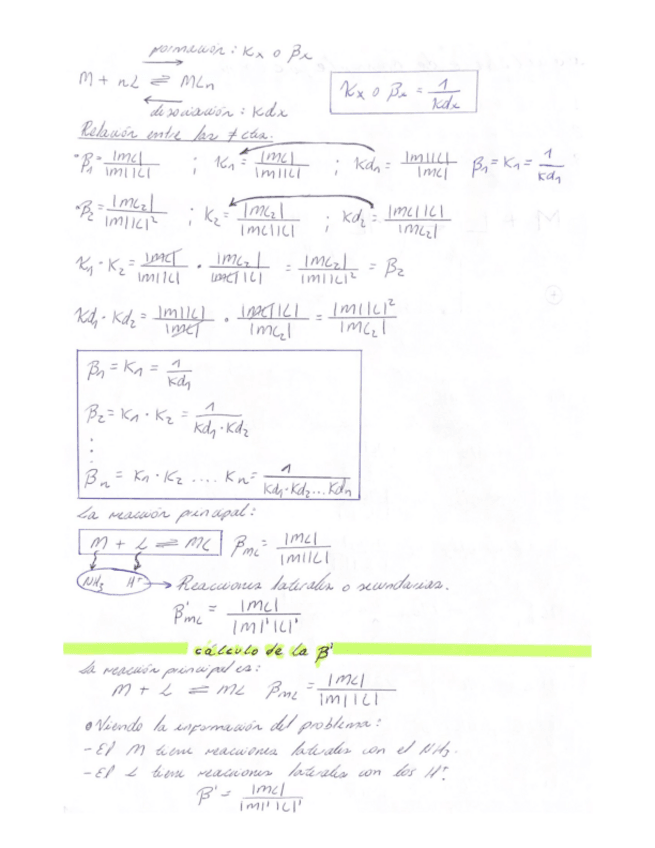 formación: Kx o βx
M + nL ⇌ MLn
disociación: Kdx
Kx o βx = 1/Kdx
Relación entre las ≠ ctes.
·β1 = |ML| / |M||L| ; K1 = |ML| / |M||L| ; Kd1 = |M||L| / |ML| β1 = K1 = 1/Kd1
·β2 = |ML2| / |M||L|² ; K2 = |ML2| / |ML||L| ; Kd2 = |ML||L| / |ML2|
K1 · K2 = |ML| / |M||L| · |ML2| / |ML||L| = |ML2| / |M||L|² = β2
Kd1 · Kd2 = |M||L| / |ML| · |ML||L| / |ML2| = |M||L|² / |ML2|
β1 = K1 = 1/Kd1
β2 = K1 · K2 = 1/Kd1·Kd2
⋮
βn = K1 · K2 .... Kn = 1/Kd1·Kd2...Kdn
La reacción principal:
M + L ⇌ ML βML = |ML| / |M||L|
NH3 H+ → Reacciones laterales o secundarias.
β'ML = |ML| / |M|'|L|'
cálculo de la β'
La reacción principal es:
M + L ⇌ ML βML = |ML| / |M||L|
• Viendo la información del problema:
- El M tiene reacciones laterales con el NH3.
- El L tiene reacciones laterales con los H+.
β' = |ML| / |M|'|L|'